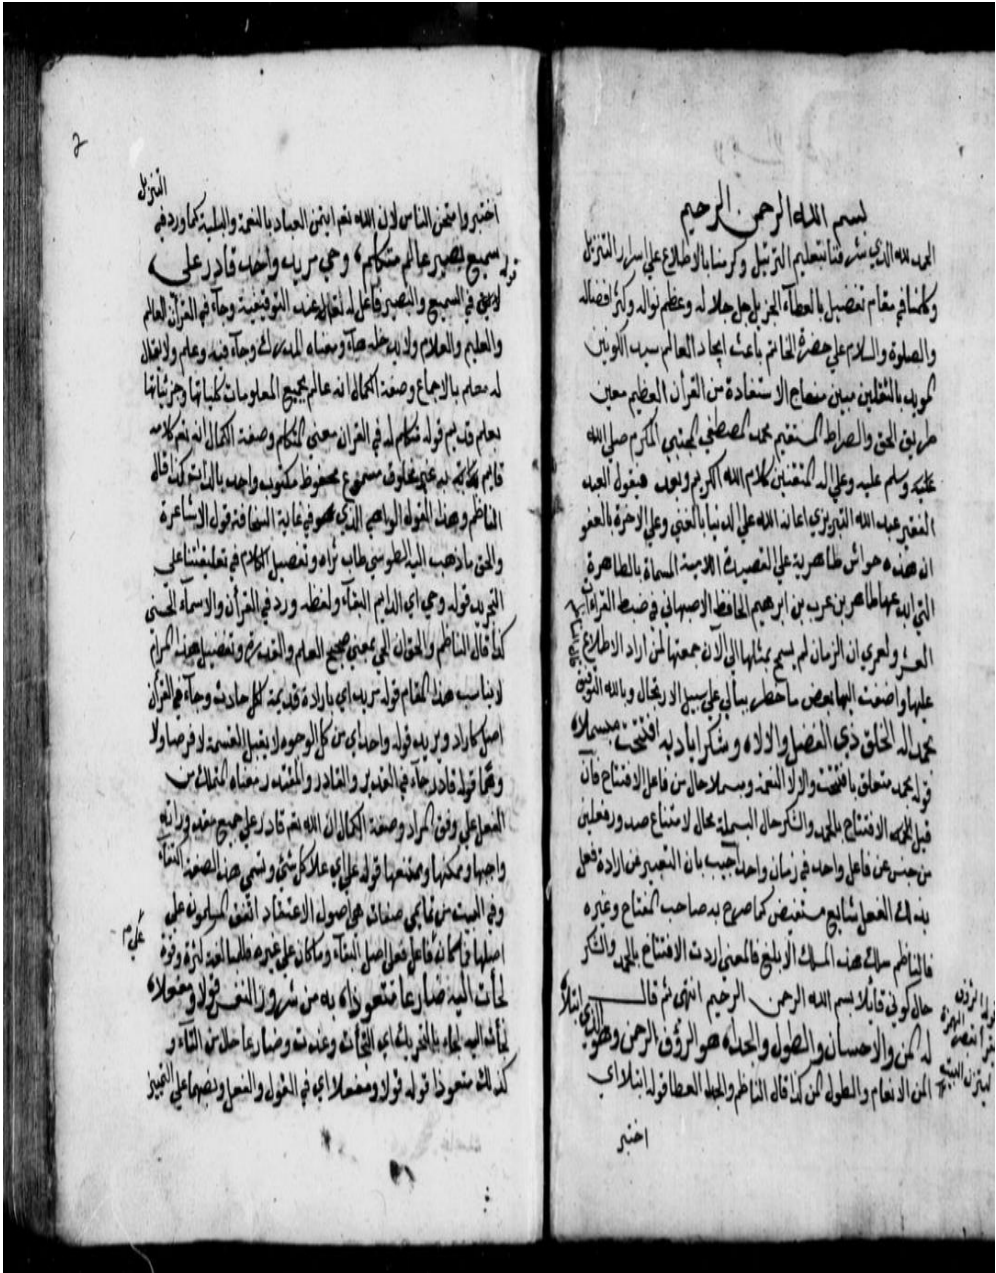 بسم الله الرحمن الرحيم
الحمد لله الذي شرفنا بتعليم الترتيل وكرمنا بالاطلاع علي اسرار التنزيل
وكلمنا في مقام تفضيل بالعطاء الجزيل جل جلاله وعظم نواله وكثر افضاله
والصلوة والسلام علي حضرة الخاتم باعث ايجاد العالم سيد الكونين
المويد بالثقلين مبين منهاج الاستفادة من القرأن العظيم معين
طريق الحق والصراط المستقيم محمد المصطفي المجتبي المكرم صلي الله
عليه وسلم عليه وعلي اله المقتفين كلام الله الكريم وبعد فيقول العبد
الفقير عبد الله التبريزي اعانه الله علي الدنيا بالغني وعلي الاخرة بالعفو
ان هذه حواش ظاهرية علي القصيدة اللامية المسماة بالطاهرة
التي ابدعها طاهر بن عرب بن ابرهيم الحافظ الاصبهاني في ضبط القراءات
العشر ولعمري ان الزمان لم يسمح بمثلها الي الآن جمعتها لمن اراد الاطلاع
عليها واضفت اليها بعض ما خطر ببالي علي سبيل الارتجال وبالله التوفيق
بحمد اله الخلق ذي الفضل والالاه وشكر اياديه افتتحت مبسملاه
قوله بحمد متعلق بافتتحت والالا النعمة ومبسملا حال من فاعل الافتتاح فان
قيل الافتتاح بالحمد والشكر حال البسملة محال لامتناع صدور فعلين
من جنس عن فاعل واحد في زمان واحد اجيب بان التعبير عن ارادة فعل
بذلك الفعل شايع مستفيض كما صرح به صاحب المفتاح وغيره
فالناظم سلك هذا المسلك الابلغ فالمعني اردت الافتتاح بالحمد والشكر
حال كوني قائلا بسم الله الرحمن الرحيم انتهي ثم قال
له المن والاحسان والطول والجداه هو الرؤف الرحمن وهو الذي ابتلاه
المن الانعام والطول المن كذا قال الناظم والجدا العطا قوله ابتلا اي
اختبر
التنزيل
اختبر وامتحن الناس لان الله تعم ابتحن العباد بالنعمة والبلية كما ورد في
سميع بصير عالم متكلم، وحي مريد واحد قادر علي
قوله
في السميع والبصير فاعل له تعالي عند التوقيفية وجاء في القرآن العالم
والعليم والعلام ومعناه المدرك وجاء فيه وعلم ولا يقال
له معلم بالاجماع وصفة الكمال انه عالم بجميع المعلومات كلياتها وجزئياتها
بعلم قديم قوله متكلم له في القران معني المتكلم وصفة الكمال انه تعم كلامه
قايم به غير مخلوق مسموع محفوظ مكتوب واحد بالذات كذا قال
الناظم وهذا القول الواهي الذي هو في غاية السخافة قول الاشاعرة
والحق ما ذهب اليه الطوسي طاب ثراه وتفصيل الكلام في تعليقتنا علي
التجريد قوله وحي اي الدايم البقاء ولفظه ورد في القرأن والاسماء الحسني
كذا قال الناظم والحق ان الحي بمعني صحيح العلم والقدرة وتفصيل هذا المرام
لا يناسب هذا المقام قوله مريد اي بارادة قديمة لكل حادث وجاء في القرأن
اصله كاراد ويريد قوله واحد اي من كل الوجوه لا يقبل القسمة لا فرضا ولا
وهما قوله قادر جاء في القدير والقادر والمقتدر ومعناه المتمكن من
الفعل علي وفق المراد وصفة الكمال ان الله تعم قادر علي جميع مقدوراته
واجبها وممكنها وممتنعها قوله علي اي علا كل شيء وتسمي هذه الصفة البقاء
وفي البيت من ثماني صفات هي اصول الاعتقاد اتفق المسلمون علي
اصلها
لجأت اليه ضارعا متعوذاه به من شرور النفس قولا ومفعلاه
لجأت اليه لجاء بالتحريك اي التجأت وعذت وضارعا حال من التاء و
كذلك متعوذا قوله قولا ومفعلا اي في القول والفعل ونصبهما علي التمييز